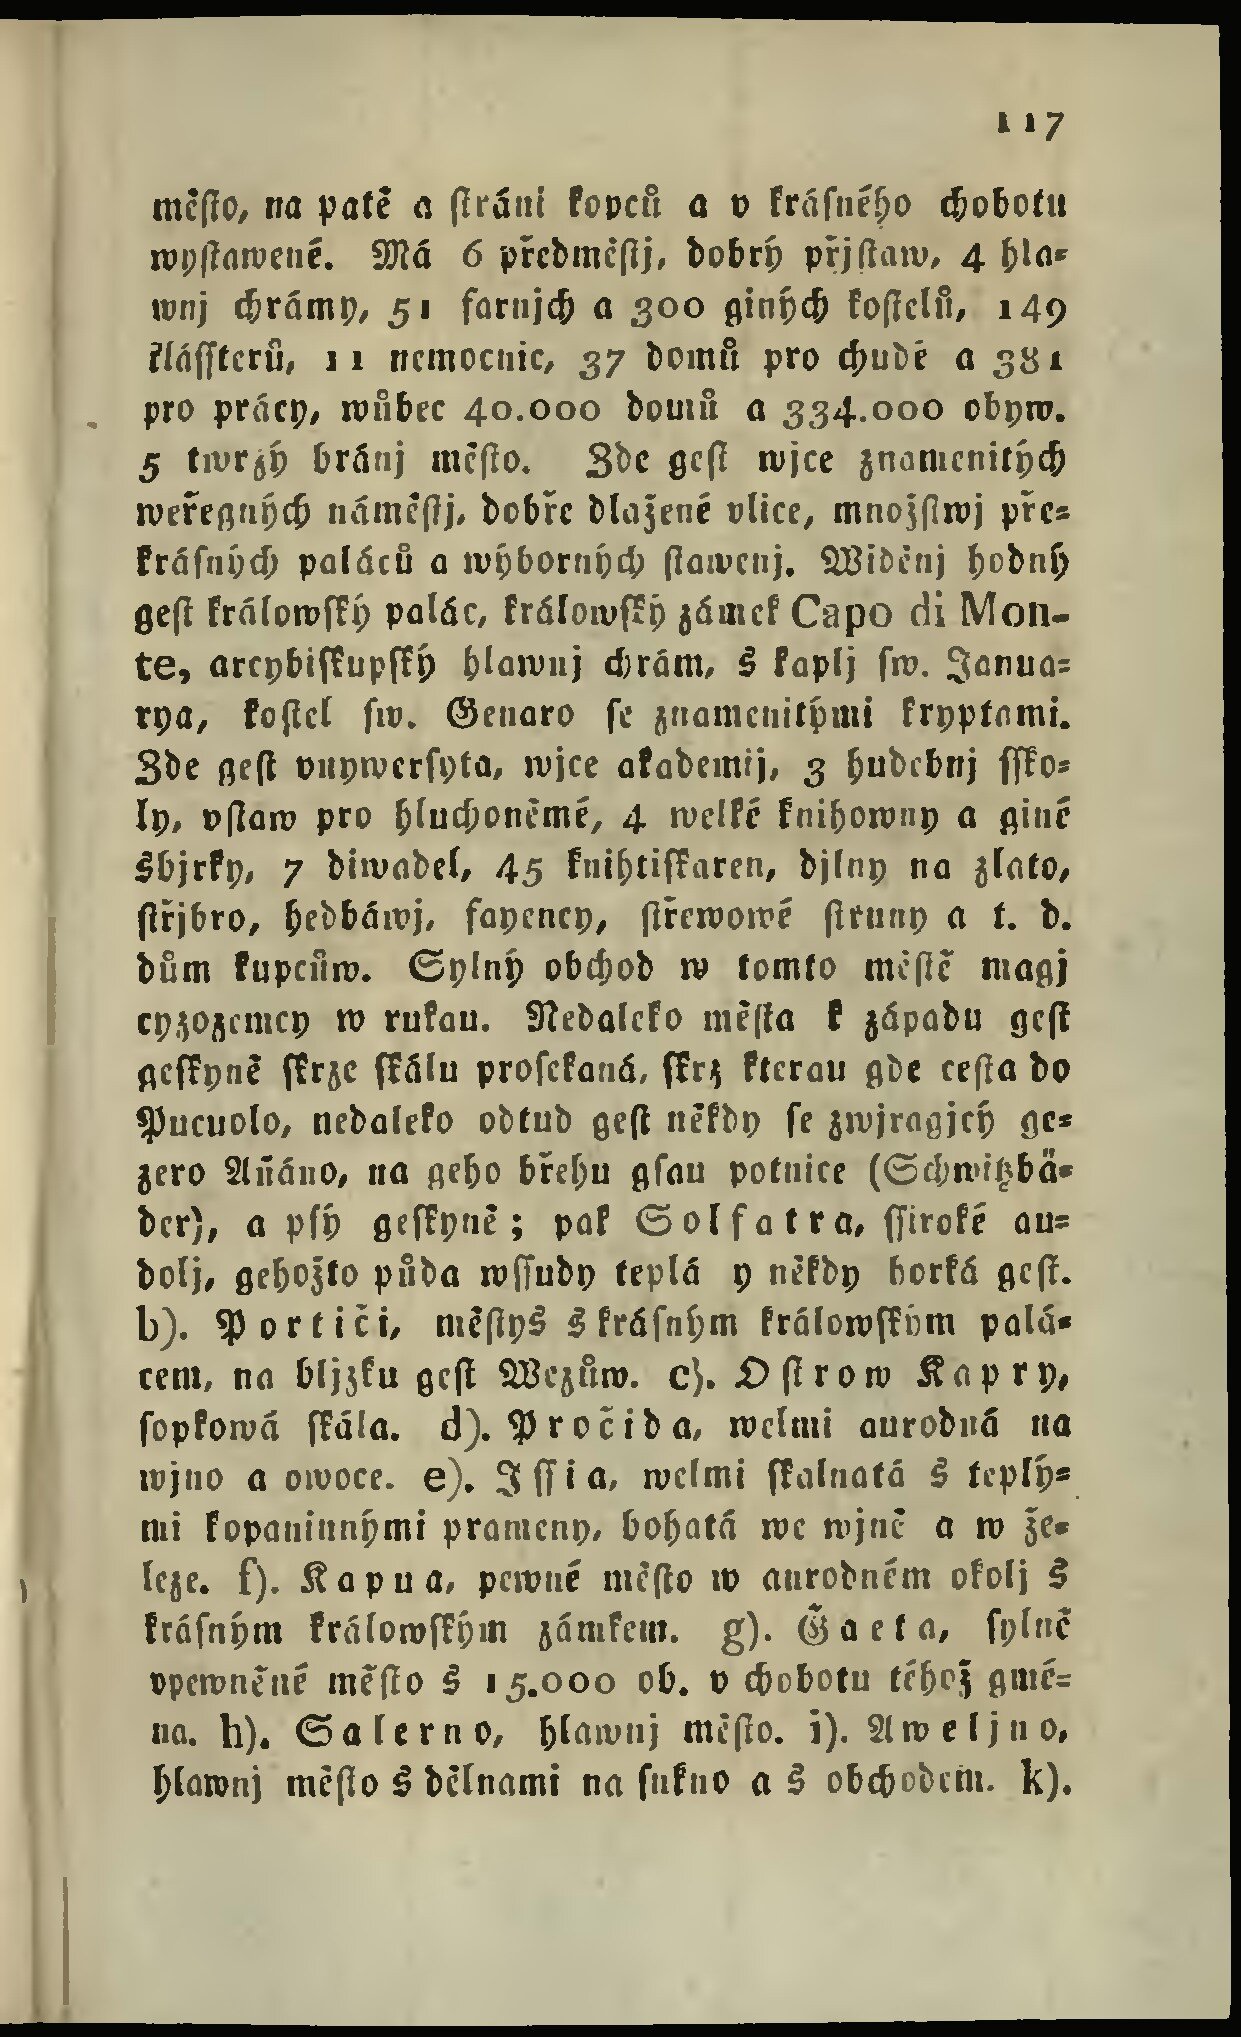 117
město, na patě a stráni kopců a v krásného chobotu
wystawené. Má 6 předměstj, dobrý přjstaw, 4 hla-
wnj chrámy, 51 farnjch a 300 giných kostelů, 149
klássterů, 11 nemocnic, 37 domů pro chudé a 381
pro prácy, wůbec 40.000 domů a 334.000 obyw.
5 twrzý bránj město. Zde gest wjce znamenitých
weřegných náměstj, dobře dlažené vlice, množstwj pře-
krásných paláců a wýborných stawenj. Widěnj hodný
gest králowský palác, králowský zámek Capo di Mon-
te, arcybiskupský hlawnj chrám, s kaplj sw. Janua-
rya, kostel sw. Genaro se znamenitými kryptami.
Zde gest vnywersyta, wjce akademij, 3 hudebnj ssko-
ly, vstaw pro hluchoněmé, 4 welké knihowny a giné
sbjrky, 7 diwadel, 45 knihtiskaren, djlny na zlato,
střjbro, hedbáwj, fayency, střewowé struny a t. d.
dům kupcůw. Sylný obchod w tomto městě magj
cyzozemcy w rukau. Nedaleko města k západu gest
geskyně skrze skálu prosekaná, skrz kterau gde cesta do
Pucuolo, nedaleko odtud gest někdy se zwjragjcý ge-
zero Aňáno, na geho břehu gsau potnice (Schwitzbä-
der), a psý geskyně; pak Solfatra, ssiroké au-
dolj, gehožto půda wssudy teplá y někdy horká gest.
b). Portiči, městys s krásným králowským palá-
cem, na bljzku gest Wezůw. c). Ostrow Kapry,
sopkowá skála. d). Pročida, welmi aurodná na
wjno a owoce. e). Issia, welmi skalnatá s teplý-
mi kopaninnými prameny, bohatá we wjně a w že-
leze. f). Kapua, pewné město w aurodném okolj s
krásným králowským zámkem. g). Ǧaeta, sylně
vpewněné město s 15.000 ob. v chobotu téhož gmé-
na. h). Salerno, hlawnj město. i). Aweljno,
hlawnj město s dělnami na sukno a s obchodem. k).